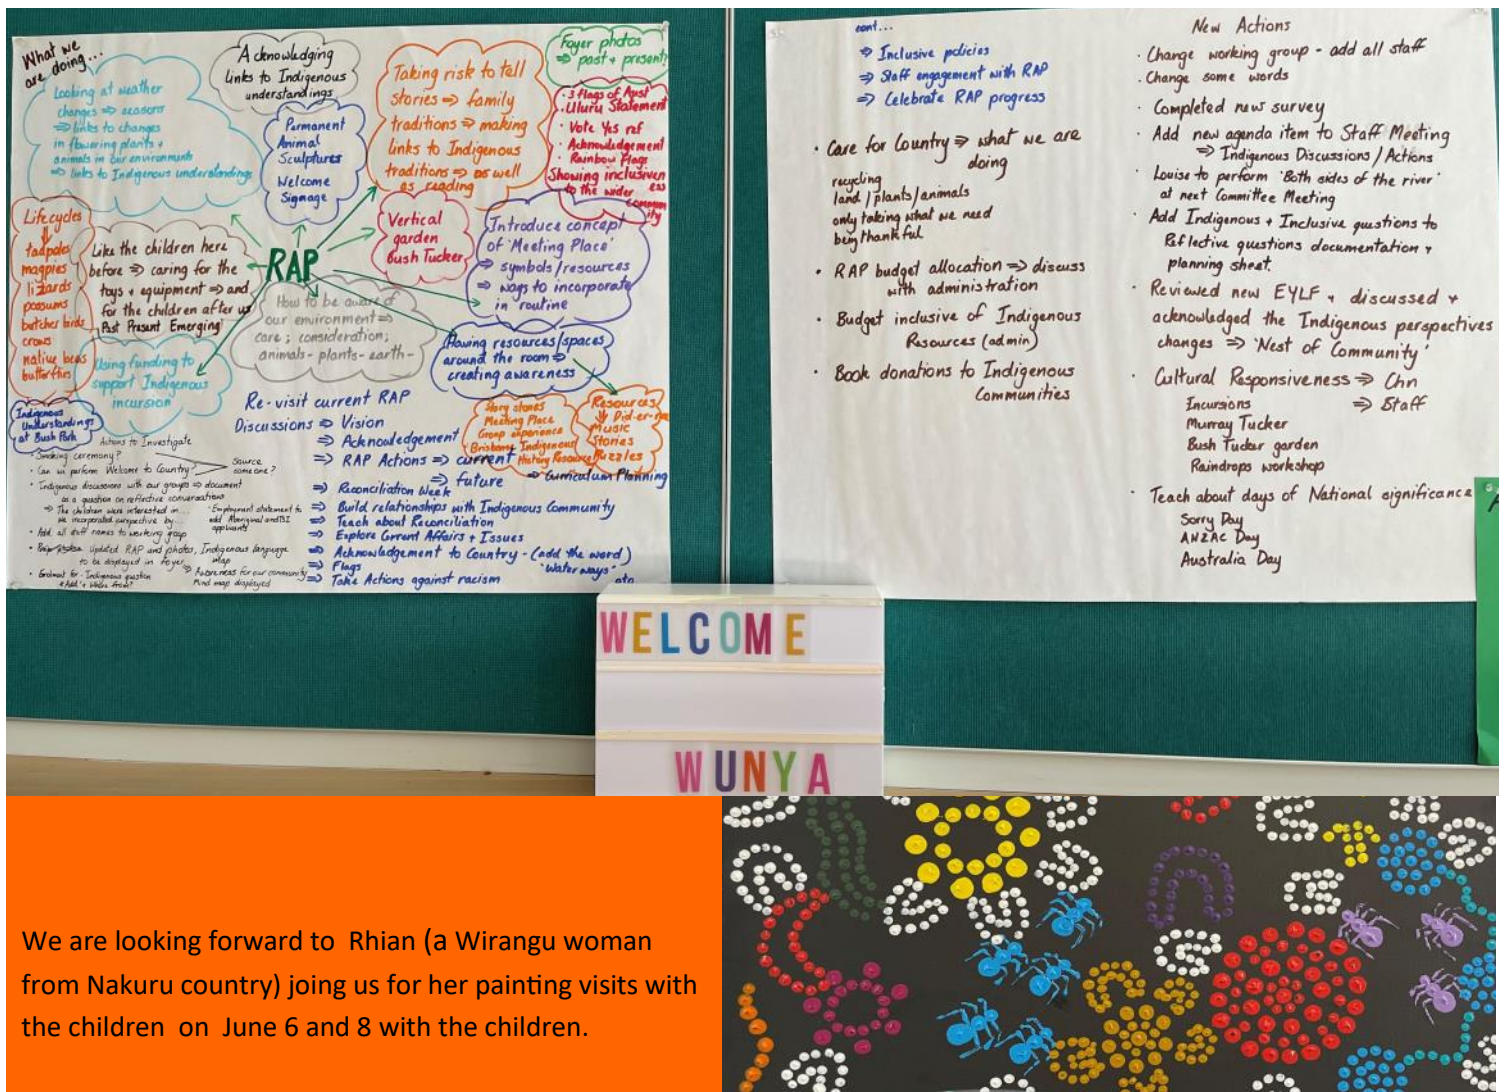 What we
are doing...
Looking at weather
changes ⇒ seasons
⇒ links to changes
in flowering plants +
animals in our environments
⇒ links to Indigenous understandings
Acknowledging
links to Indigenous
understandings
Permanent
Animal
Sculptures
Welcome
Signage
Taking risk to tell
stories ⇒ family
traditions ⇒ making
links to Indigenous
traditions ⇒ as well
as reading
Foyer photos
⇒ past + present?
• 3 flags of Aust
• Uluru Statement
• Vote Yes ref
• Acknowledgement
• Rainbow Flags
Showing inclusiven
ess
to the wider
commun
ity
Lifecycles
tadpoles
magpies
lizards
possums
butcher birds
crows
native bees
butterflies
Like the children here
before ⇒ caring for the
toys + equipment ⇒ and
for the children after us
Past Present Emerging
RAP
Vertical
garden
Bush Tucker
Introduce concept
of 'Meeting Place'
⇒ symbols/resources
⇒ ways to incorporate
in routine
How to be aware of
our environment ⇒
care; consideration;
animals - plants - earth -
Having resources/spaces
around the room ⇒
creating awareness
Using funding to
support Indigenous
incursion
Indigenous
Understandings
at Bush Park
Story stones
Meeting Place
Group experience
Brisbane Indigenous
History Resource
Resources
Music
Stories
Puzzles
Re-visit current RAP
Discussions ⇒ Vision
⇒ Acknowledgement
⇒ RAP Actions ⇒ current
⇒ future
⇒ Curriculum Planning
⇒ Reconciliation Week
⇒ Build relationships with Indigenous Community
⇒ Teach about Reconciliation
⇒ Explore Current Affairs + Issues
⇒ Acknowledgement to Country - (add the word)
'Water ways'
⇒ Flags
⇒ Take Actions against racism
etc
Actions to Investigate
• Smoking ceremony?
• Can we perform Welcome to Country?
Source
someone?
• Indigenous discussions with our groups ⇒ document
as a question on reflective conversations
⇒ The children were interested in...
We incorporated perspective by...
• Employment statement to
add Aboriginal and TSI
applicants
• Add all staff names to working group
Updated RAP and photos, Indigenous language
map
to be displayed in Foyer
⇒ Awareness for our community
Mind map displayed
• Enrolment for - Indigenous question
cont...
⇒ Inclusive policies
⇒ Staff engagement with RAP
⇒ Celebrate RAP progress
• Care for Country ⇒ what we are
doing
recycling
land/plants/animals
only taking what we need
being thankful
• RAP budget allocation ⇒ discuss
with administration
• Budget inclusive of Indigenous
Resources (admin)
• Book donations to Indigenous
Communities
New Actions
• Change working group - add all staff
• Change some words
• Completed new survey
• Add new agenda item to Staff Meeting
⇒ Indigenous Discussions/Actions
• Louise to perform 'Both sides of the river'
at next Committee Meeting
• Add Indigenous + Inclusive questions to
Reflective questions documentation +
planning sheet.
• Reviewed new EYLF + discussed +
acknowledged the Indigenous perspectives
changes ⇒ 'Nest of Community'
• Cultural Responsiveness ⇒ Chn
⇒ Staff
Incursions
Murray Tucker
Bush Tucker garden
Raindrops workshop
• Teach about days of National significance
Sorry Day
ANZAC Day
Australia Day
WELCOME
WUNYA
We are looking forward to Rhian (a Wirangu woman
from Nakuru country) joing us for her painting visits with
the children on June 6 and 8 with the children.